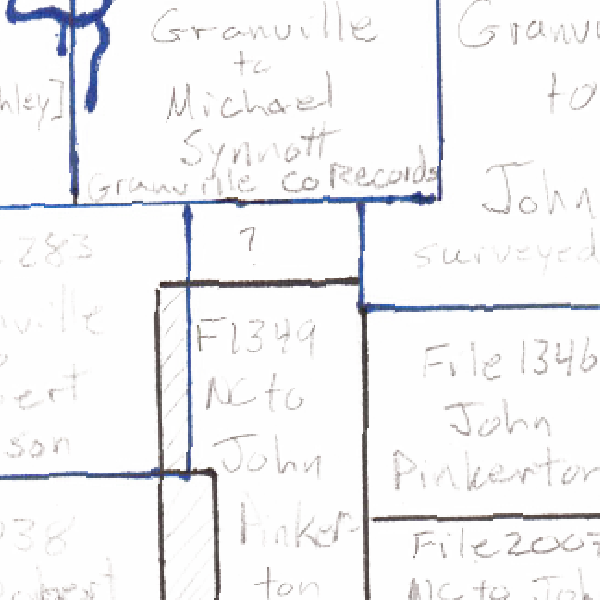 Granville
to
Michael
Synnott
Granville Co Records
hley]
Granvi
to
John
surveyed
?
283
nville
ert
son
F1349
NC to
John
Pinker-
ton
File 1346
John
Pinkerton
File 2007
NC to Joh
938
obert